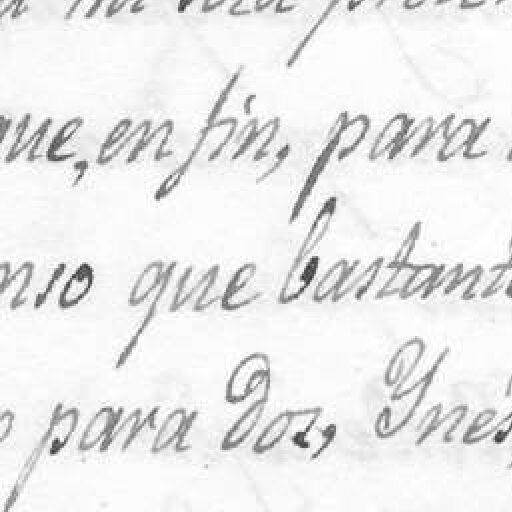 que, en fin, para
nso que bastant
para dos, Ynés